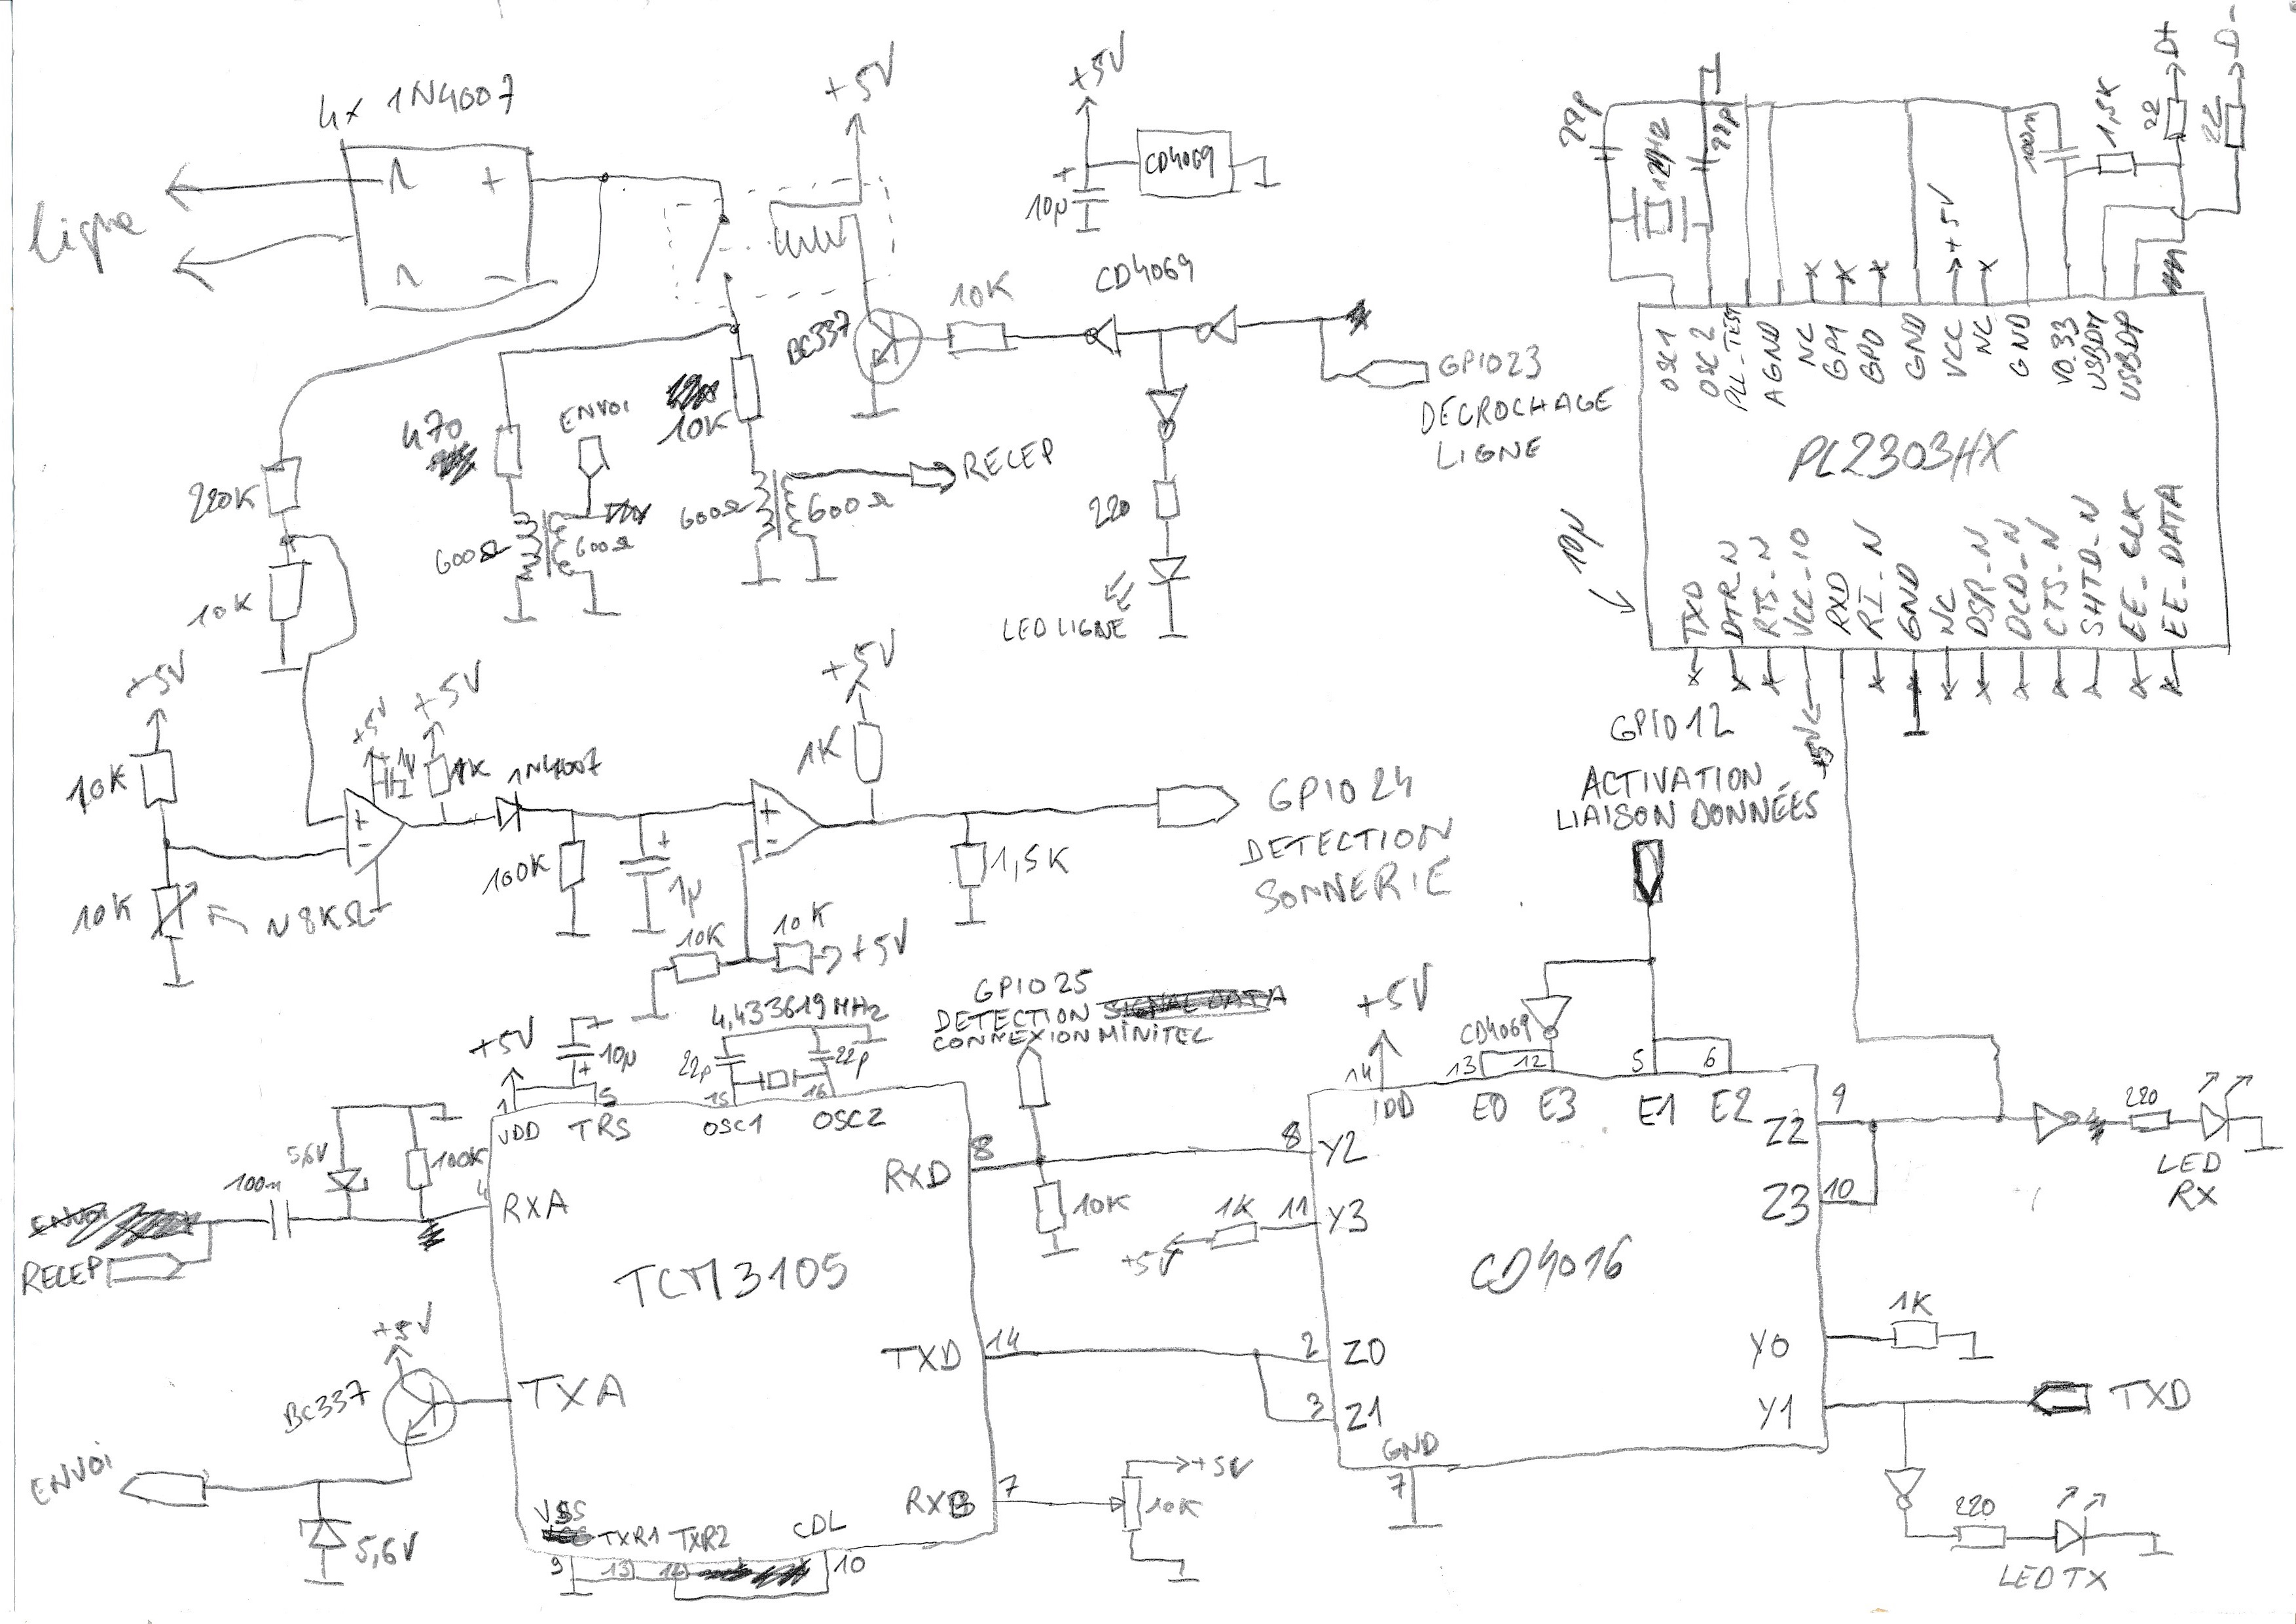 4x 1N4007
ligne
+
-
+5V
+5V
+
10µ
CD4069
CD4069
10K
BC337
GPIO23
DECROCHAGE
LIGNE
470
ENVOI
10K
RECEP
600Ω
600Ω
600Ω
600Ω
220
LED LIGNE
220K
10K
+5V
10K
10K
N 8KΩ
+5V
+5V
1K
1N4007
+
-
100K
+
1µ
+
-
10K
10K
+5V
+5V
1K
1,5K
GPIO 24
DETECTION
SONNERIE
22p
12MHz
22p
100n
1,5K
22
D+
22
D-
+5V
OSC1
OSC2
PLL_TEST
AGND
NC
GP1
GP0
GND
VCC
NC
GND
VO_33
USBDM
USBDP
PL2303HX
10µ
TXD
DTR_N
RTS_N
VCC_IO
RXD
RI_N
GND
NC
DSR_N
DCD_N
CTS_N
SHTD_N
EE_CLK
EE_DATA
+5V
GPIO12
ACTIVATION
LIAISON DONNÉES
GPIO25
DETECTION
CONNEXION MINITEL
4,433619MHz
22p
22p
+5V
10µ
+
1
5
15
16
VDD
TRS
OSC1
OSC2
5,6V
100K
100n
4
RXA
RECEP
TCM3105
RXD
8
10K
TXD
14
TXA
BC337
+5V
ENVOI
5,6V
VSS
TXR1
TXR2
CDL
9
13
12
10
RXB
7
+5V
10K
+5V
14
CD4069
13
12
5
6
VDD
E0
E3
E1
E2
8
Y2
1K
11
Y3
+5V
CD4016
2
Z0
3
Z1
GND
7
Z2
9
Z3
10
220
LED
RX
Y0
1K
Y1
TXD
220
LED TX